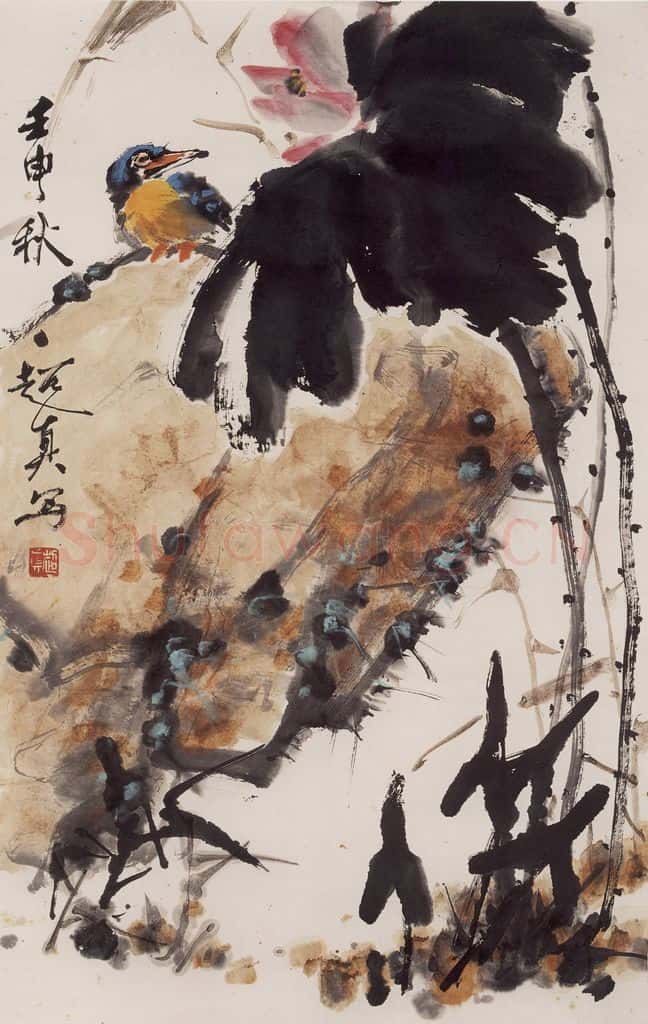 壬申秋
超真写
shufawang.cn